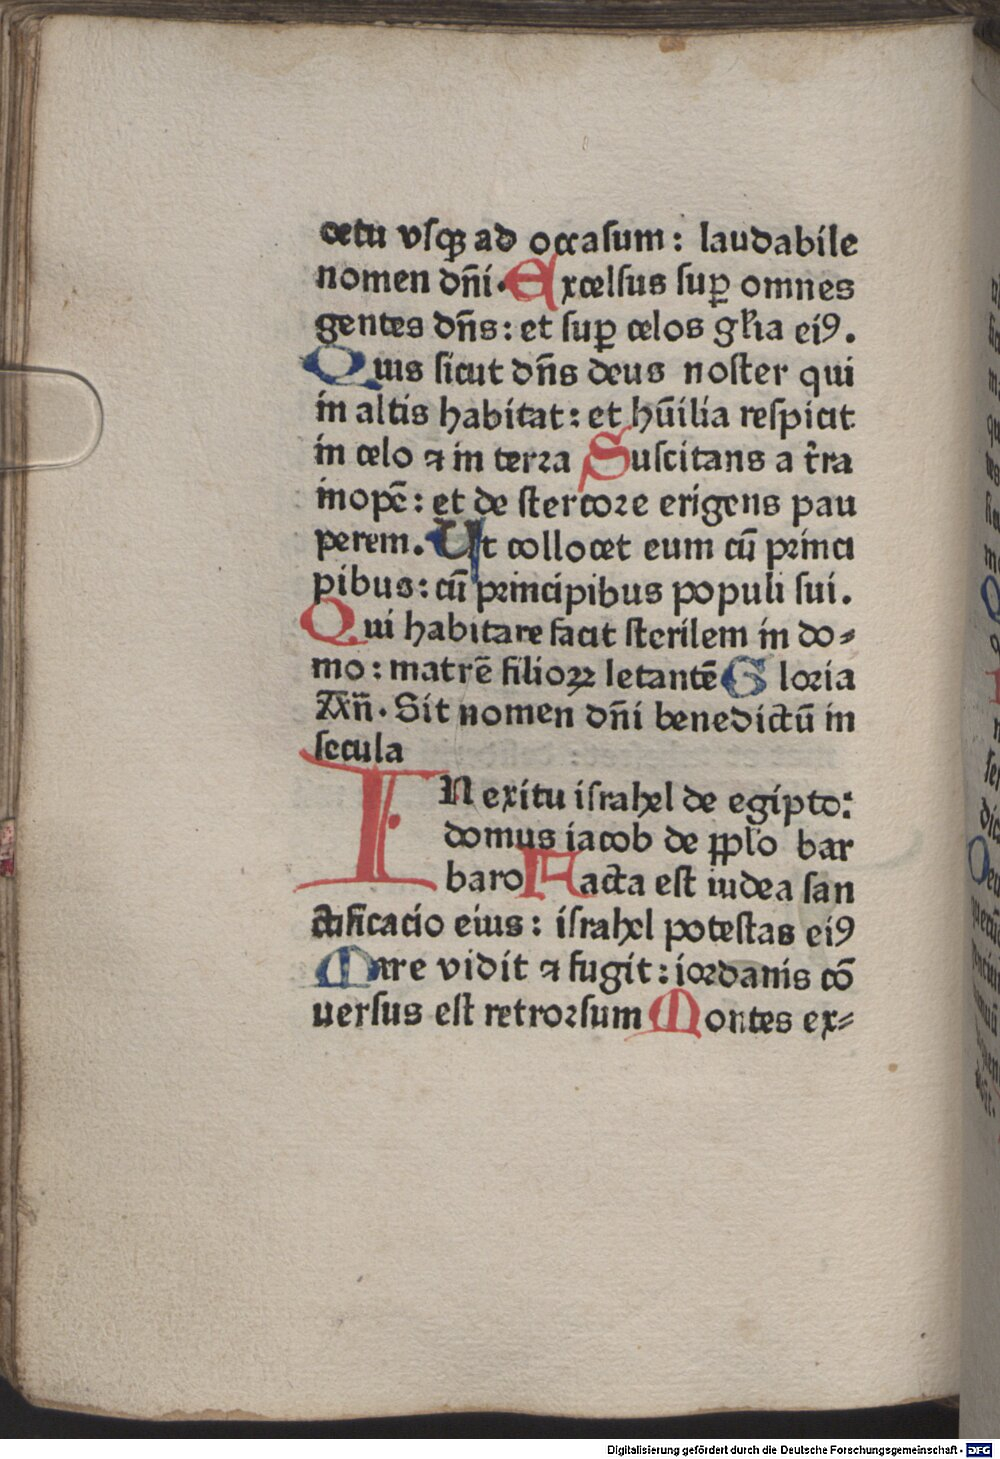 cetu vſqꝫ ad occaſum: laudabile
nomen dn̄i. Excelſus ſuꝑ omnes
gentes dn̄s: et ſuꝑ celos gl̄ia eiꝰ.
Quis ſicut dn̄s deus noſter qui
in altis habitat: et hūilia reſpicit
in celo ⁊ in terꝛa Suſcitans a t̄ra
inopē: et de ſtercoꝛe erigens pau
perem. Ut collocet eum cū pꝛinci
pibus: cū pꝛincipibus populi ſui.
Qui habitare facit ſterilem in do⸗
mo: matrē filioꝝ letantē Gloꝛia
Añ. Sit nomen dn̄i benedictū in
ſecula
IN exitu iſrahel de egipto:
domus iacob de pp̄lo bar
baro Facta eſt iudea ſan
ctificacio eius: iſrahel poteſtas eiꝰ
Mare vidit ⁊ fugit: ioꝛdanis cō
uerſus eſt retroꝛſum Montes ex⸗
Digitalisierung gefördert durch die Deutsche Forschungsgemeinschaft - DFG